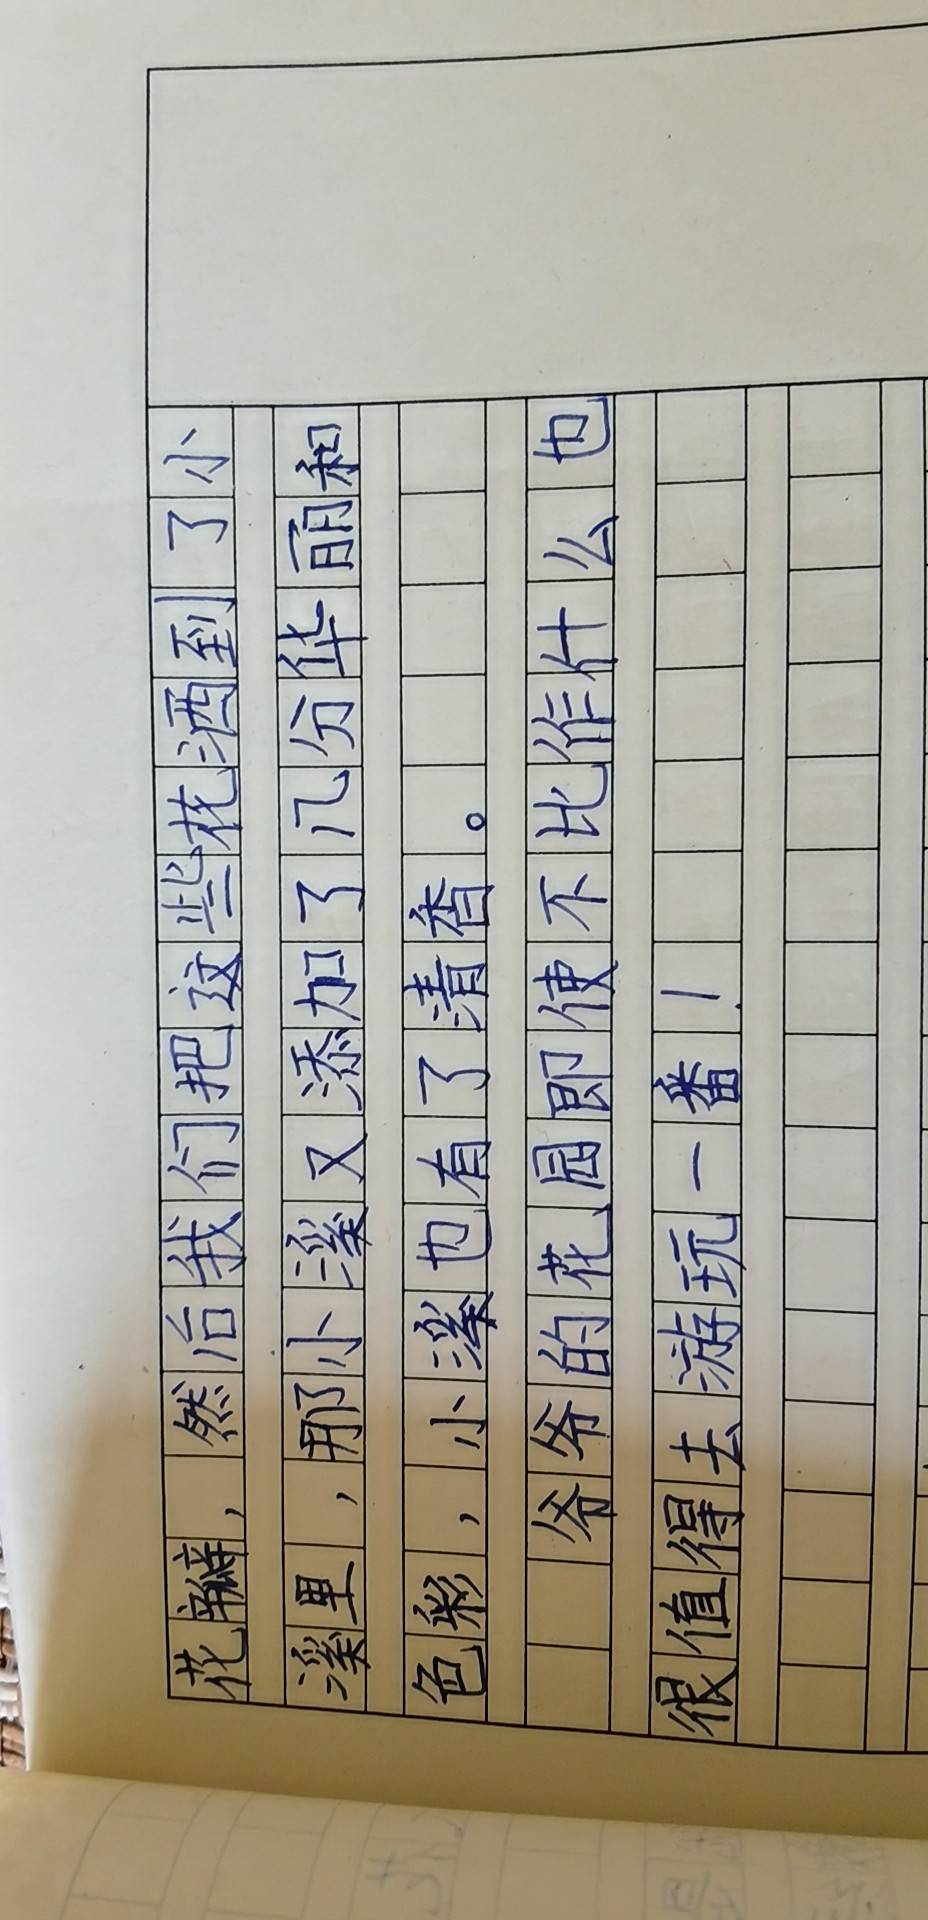 花瓣，然后我们把这些花洒到了小
溪里，那小溪又添加了几分华丽和
色彩，小溪也有了清香。
爷爷的花园即使不比作什么也
很值得去游玩一番！